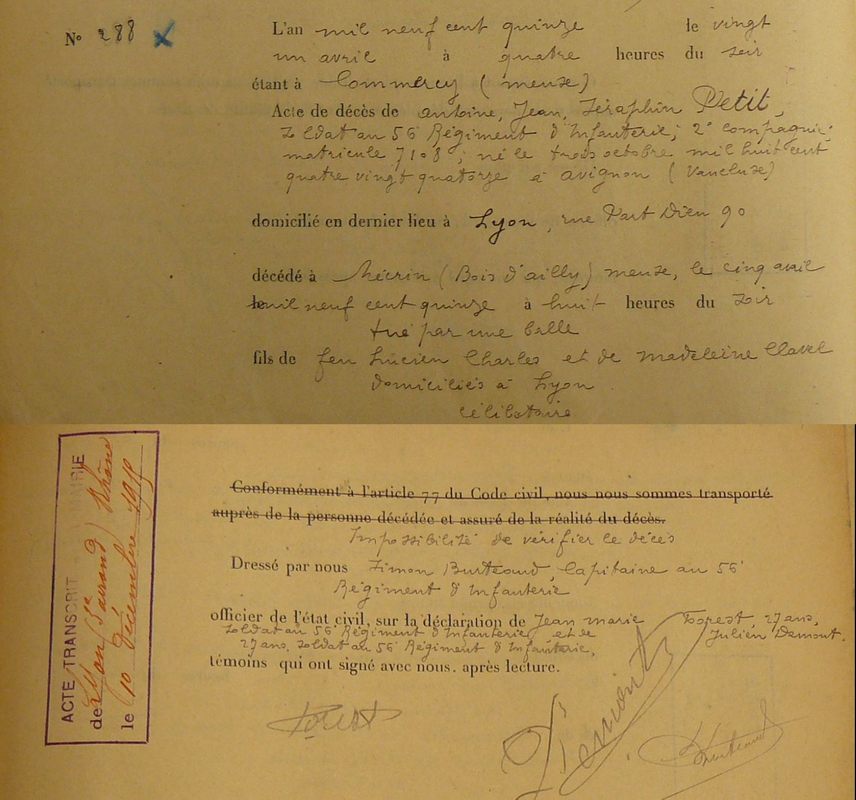 N° 288 x
L'an mil neuf cent quinze le vingt
un avril à quatre heures du soir
étant à Commercy (meuse)
Acte de décès de antoine, Jean, Séraphin Petit,
Soldat au 56e Régiment d'Infanterie; 2e compagnie;
matricule 7108; né le trois octobre mil huit cent
quatre vingt quatorze à avignon (Vaucluse)
domicilié en dernier lieu à Lyon, rue Part Dieu 90
décédé à Mécrin (Bois d'ailly) meuse, le cinq avril
mil neuf cent quinze à huit heures du soir
tué par une balle
fils de feu Lucien Charles et de Madeleine Clavel
domiciliés à Lyon
célibataire
Conformément à l'article 77 du Code civil, nous nous sommes transporté
auprès de la personne décédée et assuré de la réalité du décès.
Impossibilité de vérifier le décès
Dressé par nous Simon Burteaud, Capitaine au 56e
Régiment d'Infanterie
officier de l'état civil, sur la déclaration de Jean Marie Topest, 27 ans,
Soldat au 56e Régiment d'Infanterie, et de Julien Demont
27 ans, Soldat au 56e Régiment d'Infanterie,
témoins qui ont signé avec nous. après lecture.
Demont
ACTE TRANSCRIT
de Lyon Rhône
le 10 décembre 1915